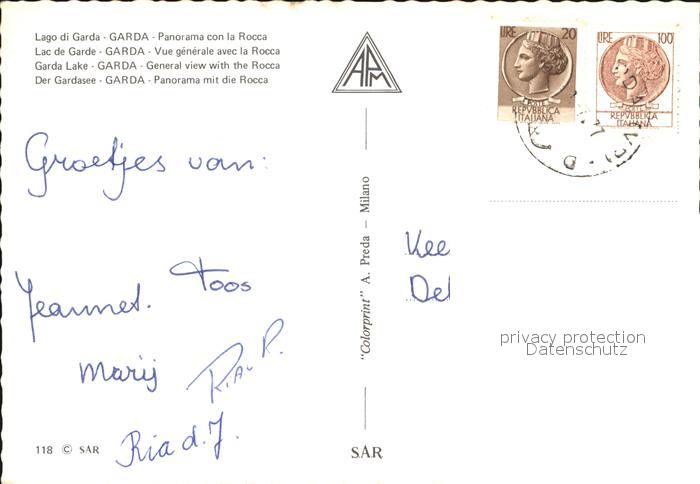 Lago di Garda - GARDA - Panorama con la Rocca
Lac de Garde - GARDA - Vue générale avec la Rocca
Garda Lake - GARDA - General view with the Rocca
Der Gardasee - GARDA - Panorama mit die Rocca
APM
LIRE 20
POSTE
REPVBBLICA
ITALIANA
LIRE 100
POSTE
REPVBBLICA
ITALIANA
Groetjes van:
Jeannet. Toos
Marij Ria R.
Ria d. J.
"Colorprint" A. Preda - Milano
Kee
Del
privacy protection
Datenschutz
118 © SAR
SAR